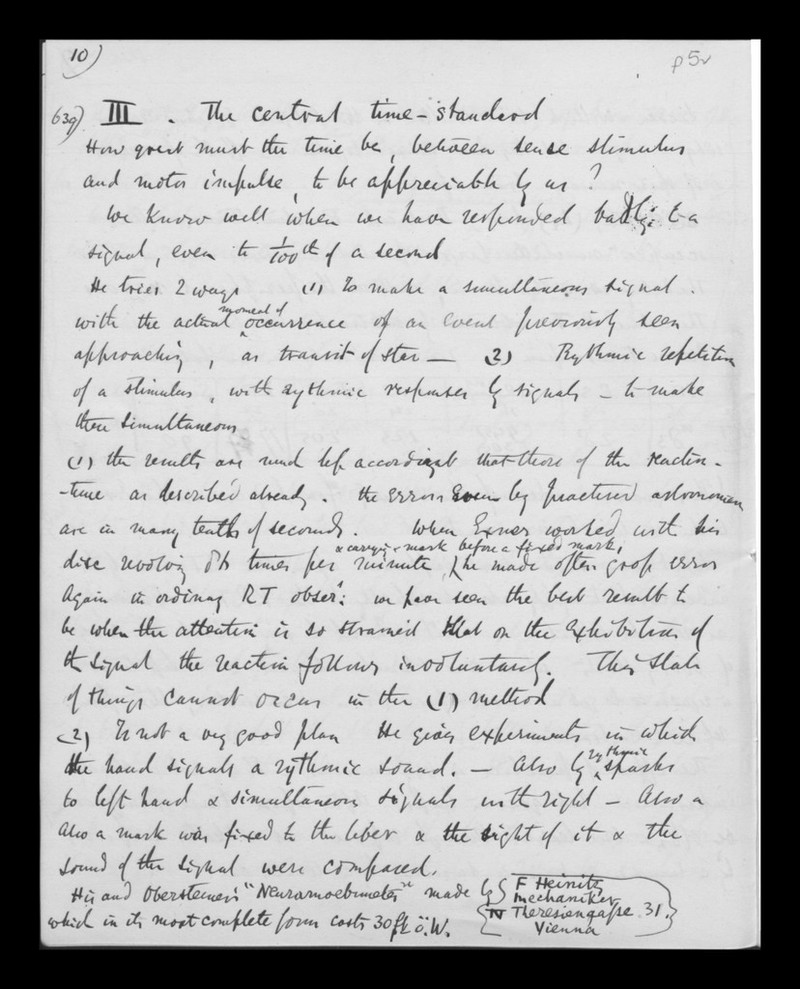 10)
p5v
639) III. The central time-standard
How great must the time be, between sense stimulus
and motor impulse, to be appreciable by us?
We know well when we have responded badly to a
signal, even to 1/100th of a second
He tries 2 ways (1) To make a simultaneous signal.
with the actual moment of occurrence of an event previously seen
approaching, as transit of star — (2) Rythmic repetition
of a stimulus, with rythmic responses by signals – to make
them simultaneous
(1) the results are much less accordant that those of the reaction-
-time as described already. The errors even by practised astronomers
are in many tenths of seconds. When Exner worked with his
disc revolving times per minute, & carrying a mark before a fixed mark, he made often gross errors
Again in ordinary RT obsern: we have seen the best result to
be when the attention is so strained that on the exhibition of
the signal the reaction follows involuntarily. This state
of things cannot occur in the (1) method
(2) Is not a very good plan He gives experiments in which
the hand signals a rythmic sound. – Also by rythmic sparks
to left hand & simultaneous signals with right – Also a
Also a mark was fixed to the & the sight of it & the
sound of the signal were compared.
His and Obersteiner's "Neuramoebimeter" made by F Heinitz
Mechaniker
which in its most complete form costs 30 fl ö.W. Theresiengasse 31.
Vienna